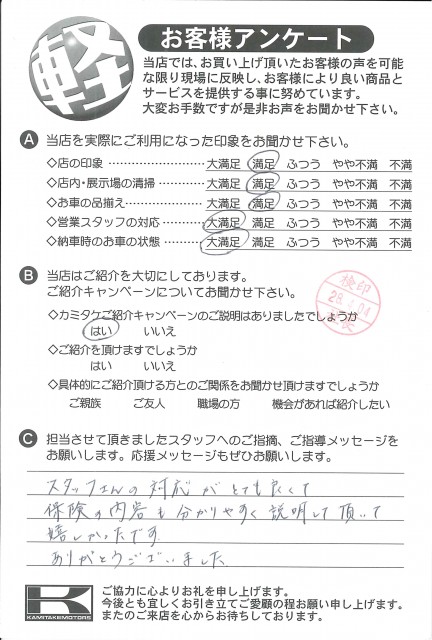 軽
お客様アンケート
当店では、お買い上げ頂いたお客様の声を可能
な限り現場に反映し、お客様により良い商品と
サービスを提供する事に努めています。
大変お手数ですが是非お声をお聞かせ下さい。
A 当店を実際にご利用になった印象をお聞かせ下さい。
◇店の印象 ………………………… 大満足 満足 ふつう やや不満 不満
◇店内・展示場の清掃 ………… 大満足 満足 ふつう やや不満 不満
◇お車の品揃え………………… 大満足 満足 ふつう やや不満 不満
◇営業スタッフの対応 ………… 大満足 満足 ふつう やや不満 不満
◇納車時のお車の状態 ………… 大満足 満足 ふつう やや不満 不満
B 当店はご紹介を大切にしてあります。
ご紹介キャンペーンについてお聞かせ下さい。
検印
◇カミタケご紹介キャンペーンのご説明はありましたでしょうか
はい いいえ
◇ご紹介を頂けますでしょうか
はい いいえ
◇具体的にご紹介頂ける方とのご関係をお聞かせ頂けますでしょうか
ご親族 ご友人 職場の方 機会があれば紹介したい
C 担当させて頂きましたスタッフへのご指摘、ご指導メッセージを
お願いします。応援メッセージもぜひお願いします。
スタッフさんの対応がとても良くて
保険の内容も分かりやすく説明して頂いて
嬉しかったです
ありがとうございました
K
KAMITAKEMOTORS
ご協力に心よりお礼を申し上げます。
今後とも宜しくお引き立てご愛顧の程お願い申し上げます。
またのご来店を心からお待ちしております。